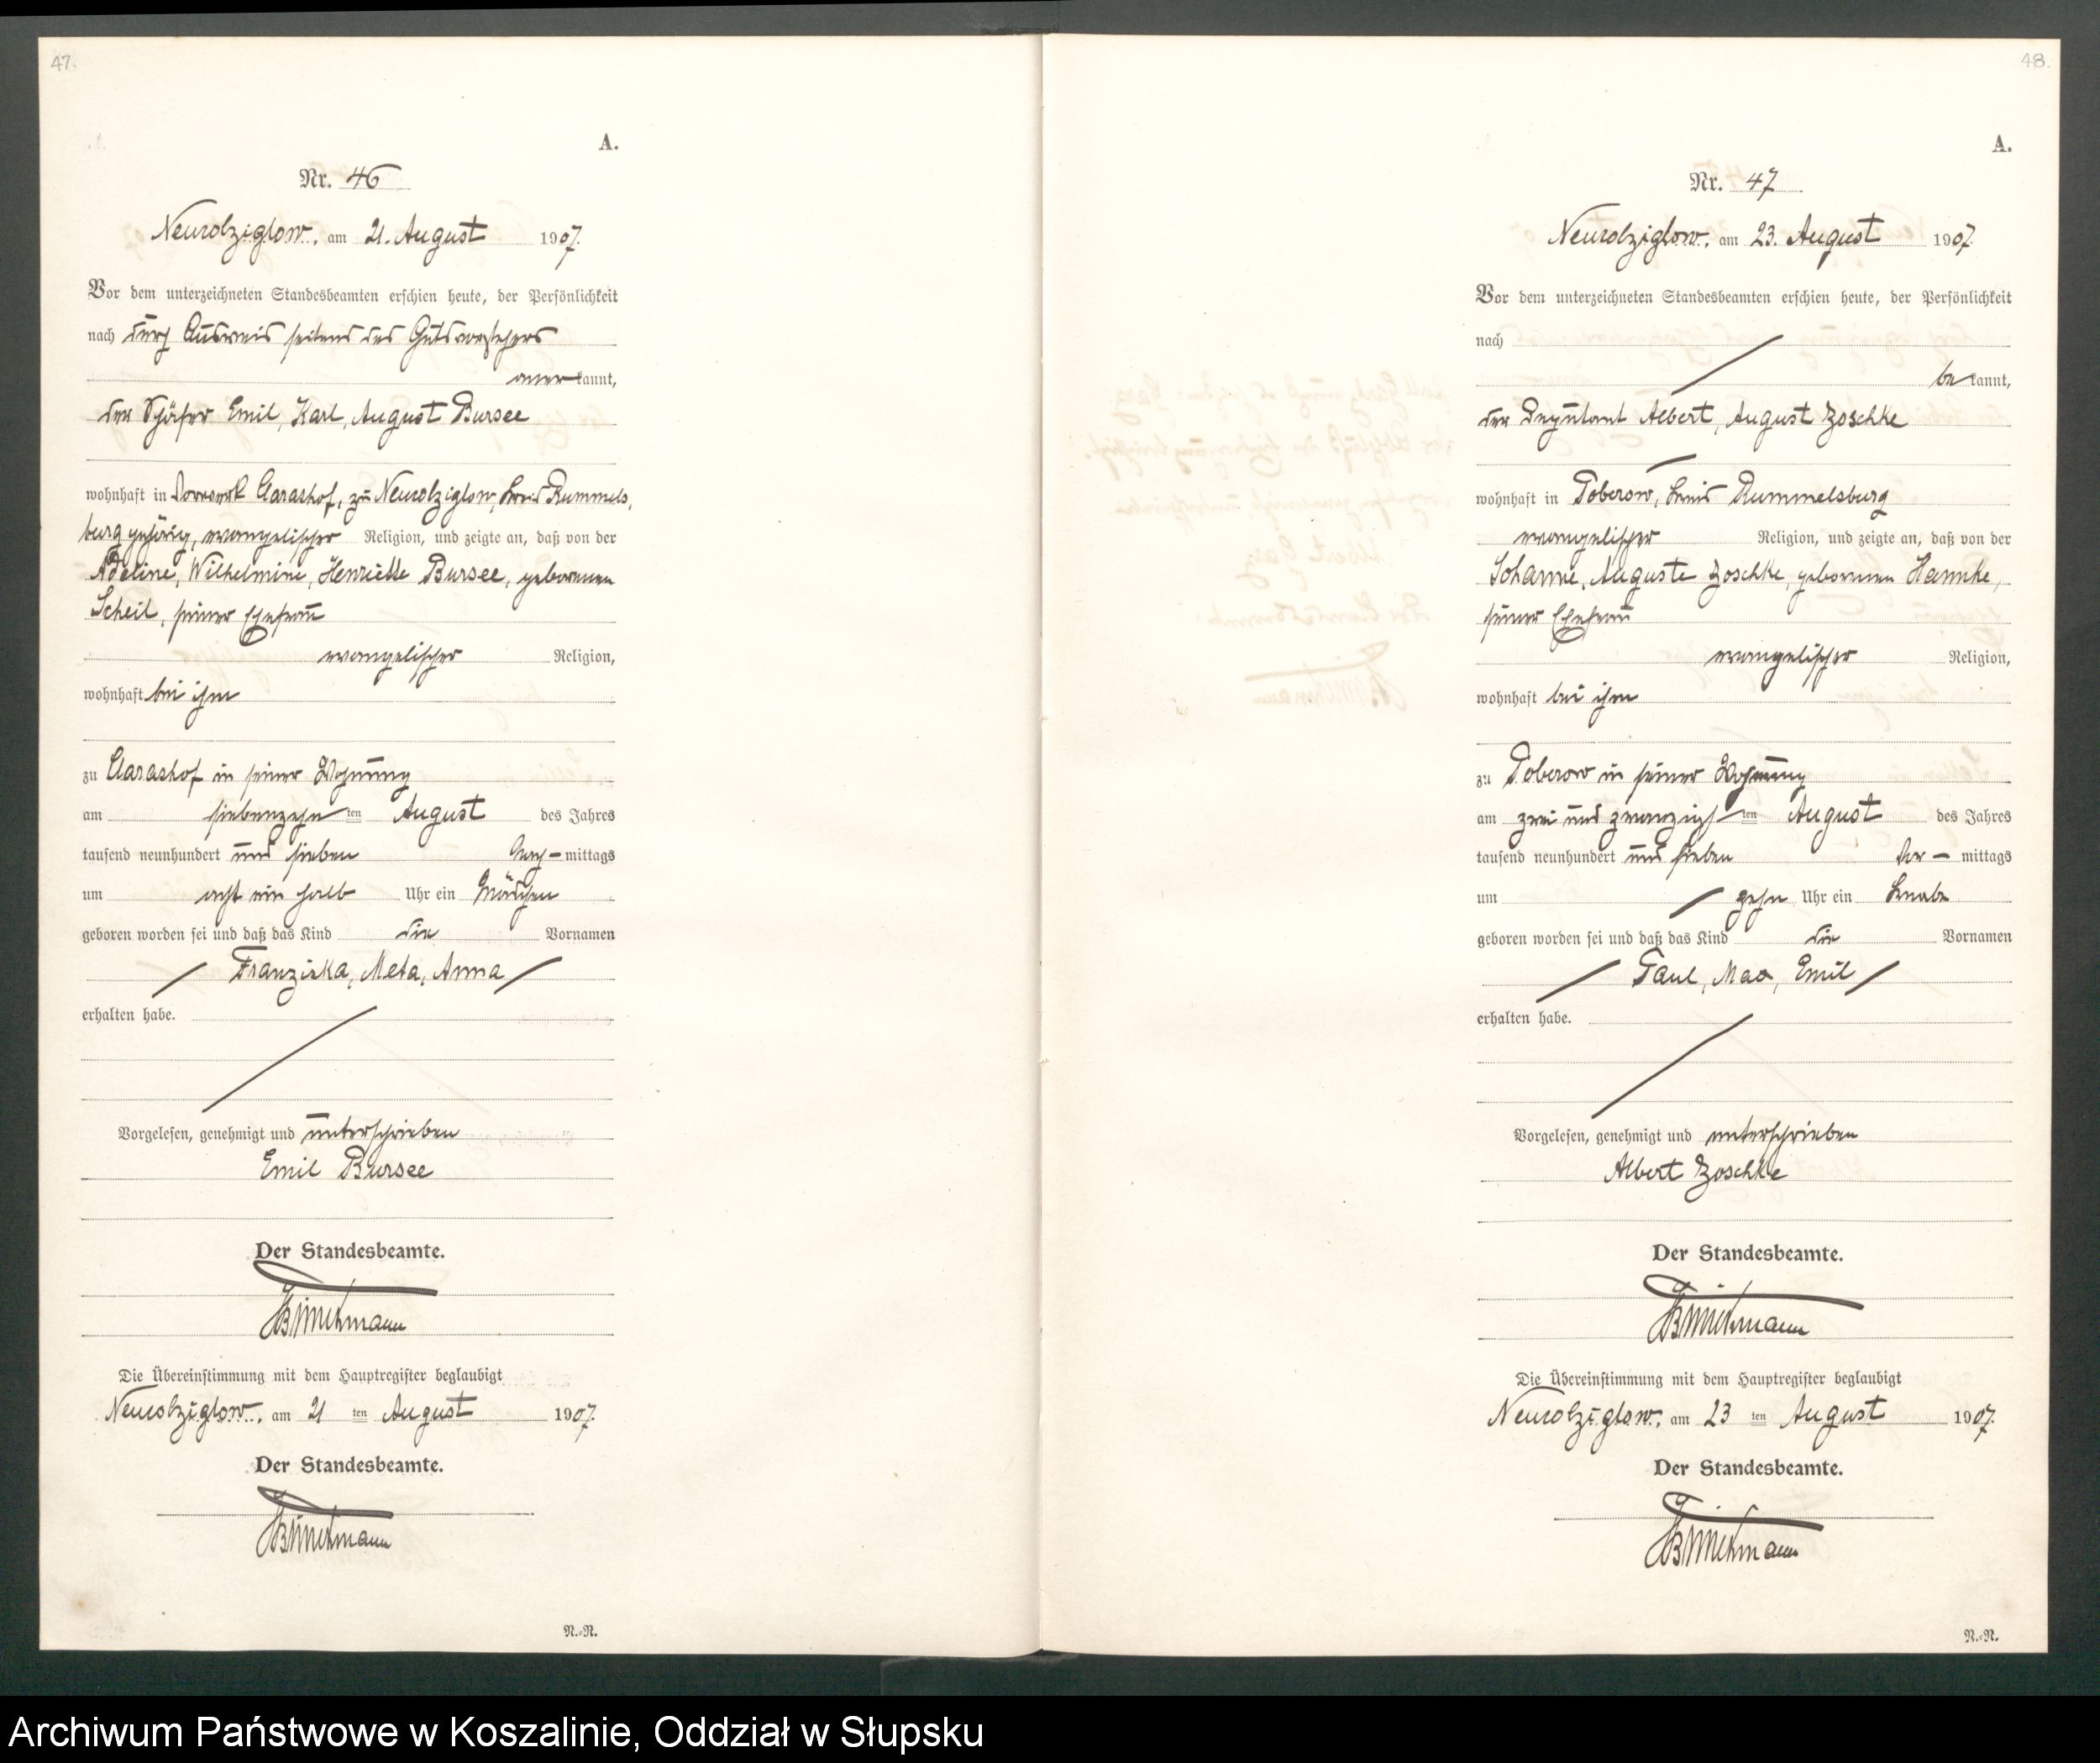 47.
A.
Nr. 46
Neukolziglow, am 21. August 1907.
Vor dem unterzeichneten Standesbeamten erschien heute, der Persönlichkeit
nach durch Ausweis seitens des Gutsvorstehers
anerkannt,
der Schäfer Emil, Karl, August Bursee
wohnhaft in Vorwerk Clarashof, zu Neukolziglow, Kreis Rummels,
burg gehörig, evangelischer Religion, und zeigte an, daß von der
Adeline, Wilhelmine, Henriette Bursee, geborenen
Scheil, seiner Ehefrau
evangelischer Religion,
wohnhaft bei ihm
zu Clarashof in seiner Wohnung
am siebenzehnten August des Jahres
tausend neunhundert und sieben Nach-mittags
um acht ein halb Uhr ein Mädchen
geboren worden sei und daß das Kind die Vornamen
Franziska, Meta, Anna
erhalten habe.
Vorgelesen, genehmigt und unterschrieben
Emil Bursee
Der Standesbeamte.
Die Übereinstimmung mit dem Hauptregister beglaubigt
Neukolziglow, am 21 ten August 1907.
Der Standesbeamte.
N.=N.
48.
A.
Nr. 47
Neukolziglow, am 23. August 1907
Vor dem unterzeichneten Standesbeamten erschien heute, der Persönlichkeit
nach
bekannt,
der Deputant Albert, August Zoschke
wohnhaft in Poberow, Kreis Rummelsburg
evangelischer Religion, und zeigte an, daß von der
Johanne, Auguste Zoschke, geborenen Hannke,
seiner Ehefrau
evangelischer Religion,
wohnhaft bei ihm
zu Poberow in seiner Wohnung
am zwei und zwanzigsten August des Jahres
tausend neunhundert und sieben Vor-mittags
um zehn Uhr ein Knabe
geboren worden sei und daß das Kind die Vornamen
Paul, Max, Emil
erhalten habe.
Vorgelesen, genehmigt und unterschrieben
Albert Zoschke
Der Standesbeamte.
Die Übereinstimmung mit dem Hauptregister beglaubigt
Neukolziglow, am 23 ten August 1907.
Der Standesbeamte.
N.=N.
Archiwum Państwowe w Koszalinie, Oddział w Słupsku